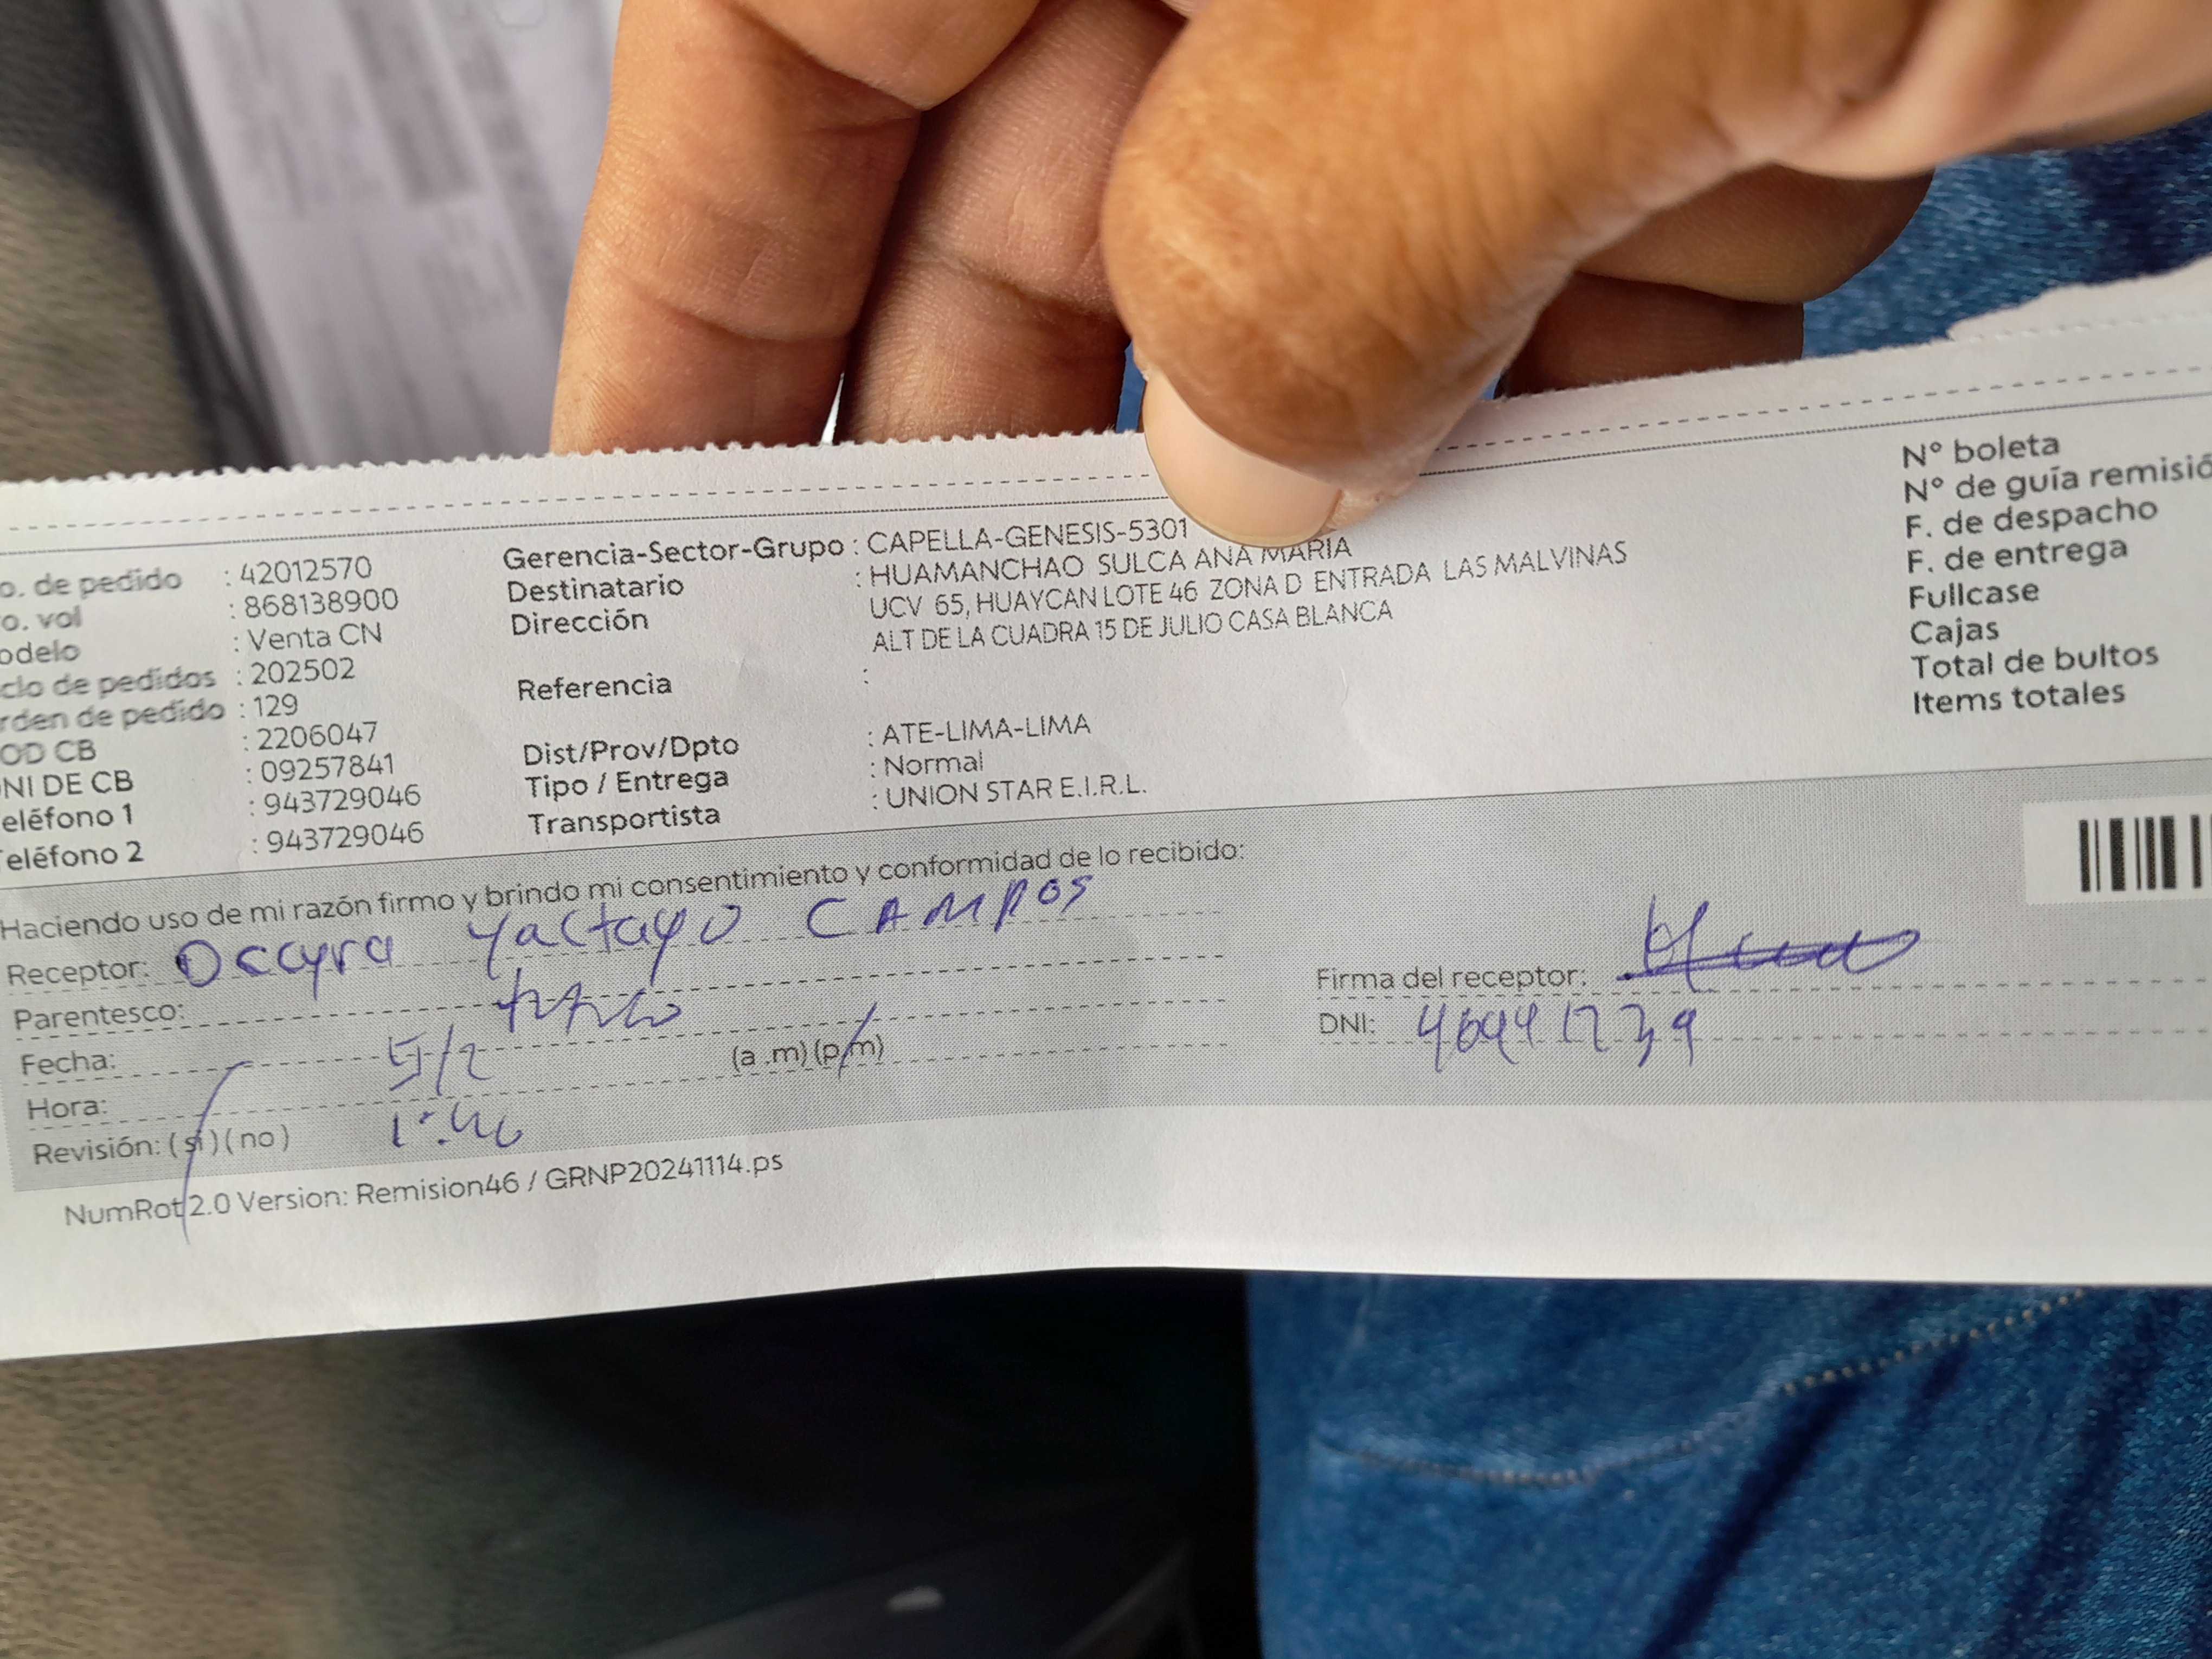 o. de pedido : 42012570
o. vol : 868138900
odelo : Venta CN
clo de pedidos : 202502
rden de pedido : 129
OD CB : 2206047
NI DE CB : 09257841
eléfono 1 : 943729046
eléfono 2 : 943729046
Gerencia-Sector-Grupo : CAPELLA-GENESIS-5301
Destinatario : HUAMANCHAO SULCA ANA MARIA
Dirección UCV 65, HUAYCAN LOTE 46 ZONA D ENTRADA LAS MALVINAS
ALT DE LA CUADRA 15 DE JULIO CASA BLANCA
Referencia :
Dist/Prov/Dpto : ATE-LIMA-LIMA
Tipo / Entrega : Normal
Transportista : UNION STAR E.I.R.L.
N° boleta
N° de guía remisió
F. de despacho
F. de entrega
Fullcase
Cajas
Total de bultos
Items totales
Haciendo uso de mi razón firmo y brindo mi consentimiento y conformidad de lo recibido:
Receptor: Yactayo CAMPOS
Parentesco:
Fecha: 5/2 (a .m) (p.m)
Hora: 1:46
Revisión: ( si ) ( no )
Firma del receptor:
DNI:
NumRot 2.0 Version: Remision46 / GRNP20241114.ps